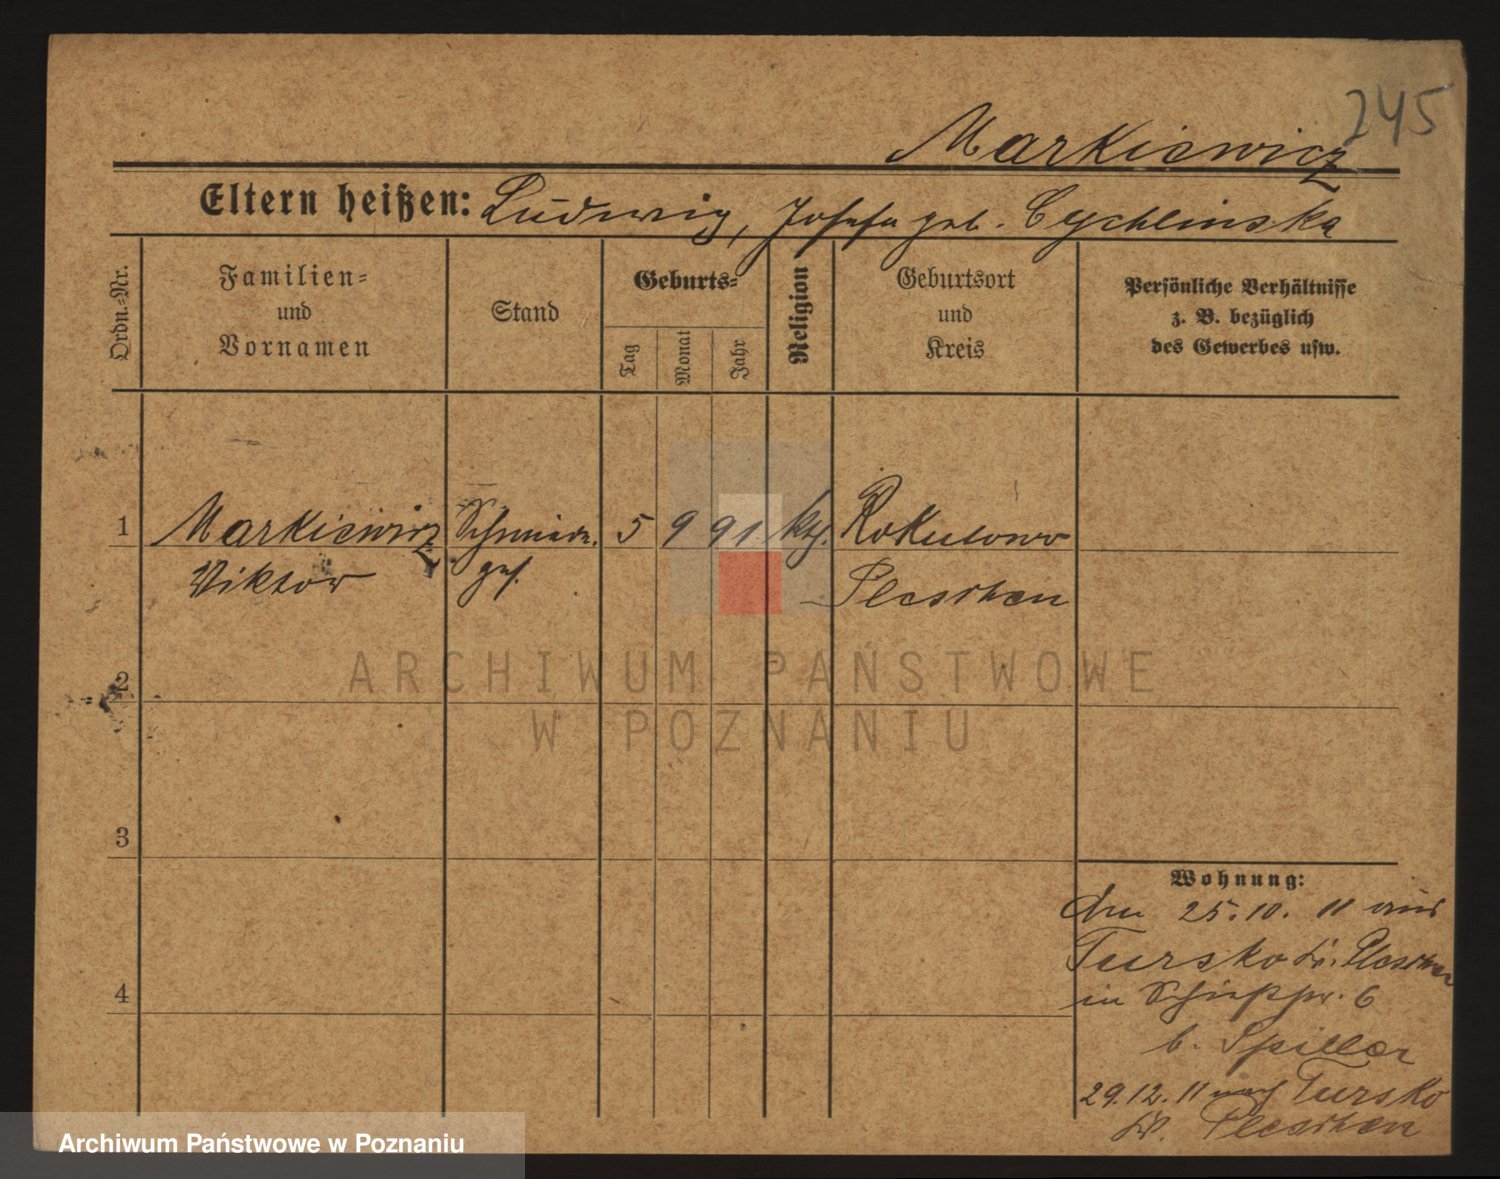 245
Markiewicz
Eltern heißen: Ludwig, Josefa geb. Cychlinska
Ordn.=Nr.
Familien=
und
Vornamen
Stand
Geburts=
Tag
Monat
Jahr
Religion
Geburtsort
und
Kreis
Persönliche Verhältnisse
z. B. bezüglich
des Gewerbes usw.
1 Markiewicz Schmiede. 5 9 91 kth. Rokutowo
Viktor ges. Pleschen
2
3
4
Wohnung:
Am 25.10. 11 aus
Tursko Kr. Pleschen
in 6
b. Spiller
29.12. 11 nach Tursko
Kr. Pleschen
ARCHIWUM PAŃSTWOWE
W POZNANIU
Archiwum Państwowe w Poznaniu